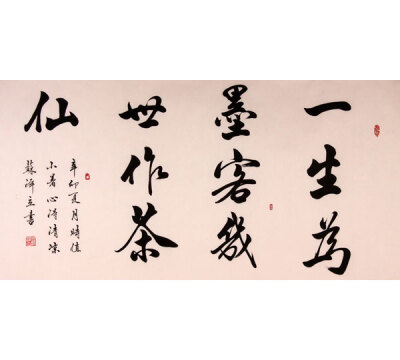 一生為
墨客幾
世作茶
仙
辛卯夏月時值
小暑心得清涼
蘇澤立書